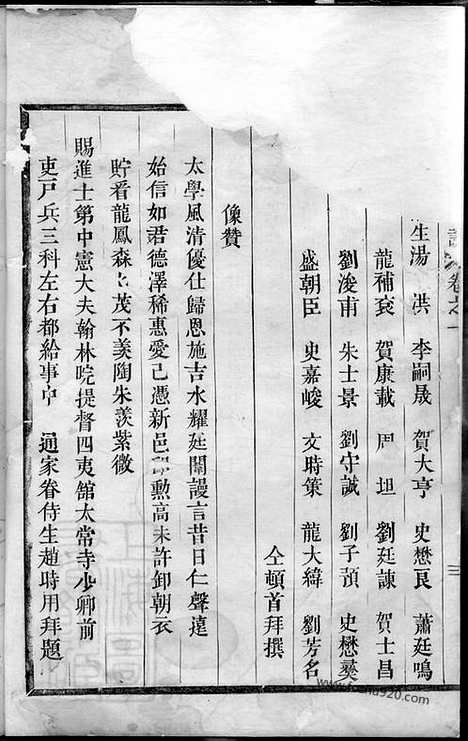 生湯 洪 李嗣晟 賀大亨 史懋良 蕭廷鳴
龍補衮 賀康載 尹 坦 劉廷諫 賀士昌
劉浚甫 朱士景 劉守誠 劉子頴 史懋龑
盛朝臣 史嘉峻 文時策 龍大緯 劉芳名
仝頓首拜撰
像贊
太學風清優仕歸恩施吉水耀廷闈謾言昔日仁聲遠
始信如君德澤稀惠愛已憑新邑勳高未許卸朝衣
貯看龍鳳森茂不羨陶朱羨紫微
賜進士第中憲大夫翰林院提督四夷館太常寺少卿前
吏戸兵三科左右都給事中 通家眷侍生趙時用拜題
卷之一
三